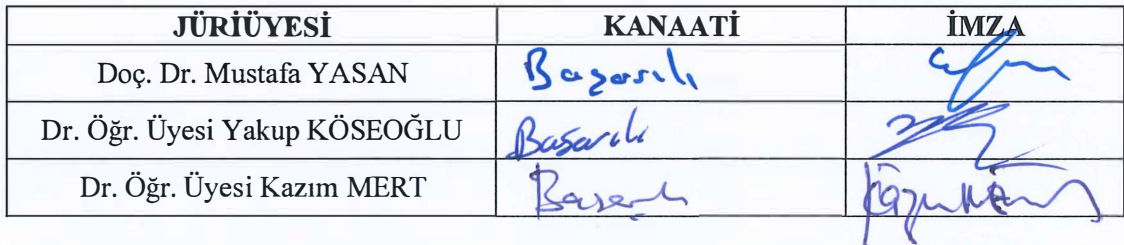 JÜRİÜYESİ KANAATİ İMZA
Doç. Dr. Mustafa YASAN Başarılı
Dr. Öğr. Üyesi Yakup KÖSEOĞLU Başarılı
Dr. Öğr. Üyesi Kazım MERT Başarılı